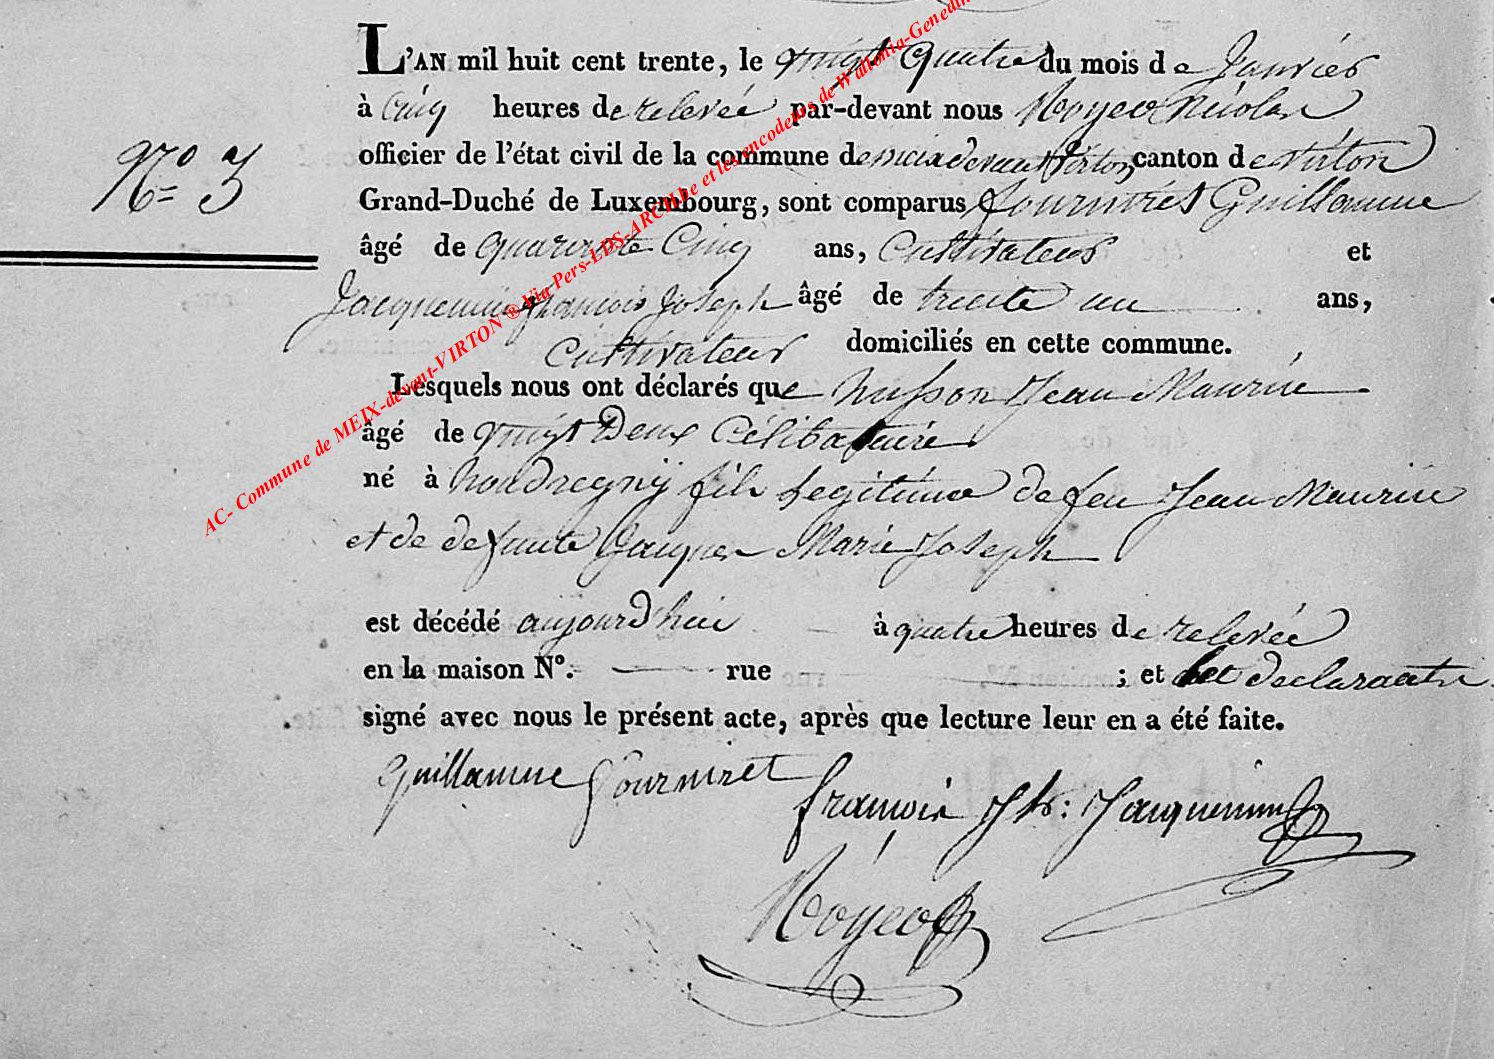 L'AN mil huit cent trente, le vingt quatre du mois de Janvier
à Cinq heures de relevée par-devant nous Noyer Nicolas
officier de l'état civil de la commune de meix devant Virton canton de virton
Grand-Duché de Luxembourg, sont comparus fourniret Guillaume
âgé de quarente Cinq ans, Cultivateur et
Jacquemin françois Joseph âgé de trente un ans,
Cultivateur domiciliés en cette commune.
N° 3
Lesquels nous ont déclarés que husson Jean Maurice
âgé de vingt Deux Célibataire
né à houdregny fils Legitime de feu Jean Maurice
et de defunte Jacques Marie Joseph
est décédé aujourd'hui à quatre heures de relevée
en la maison N°. rue ; et les declarants
signé avec nous le présent acte, après que lecture leur en a été faite.
Guillaume fourniret
françois Jh: Jacquemin
AC- Commune de MEIX-devant-VIRTON ® Via Pers-LDS-ARCHhe et les encodeurs de Wallonia-Genedin